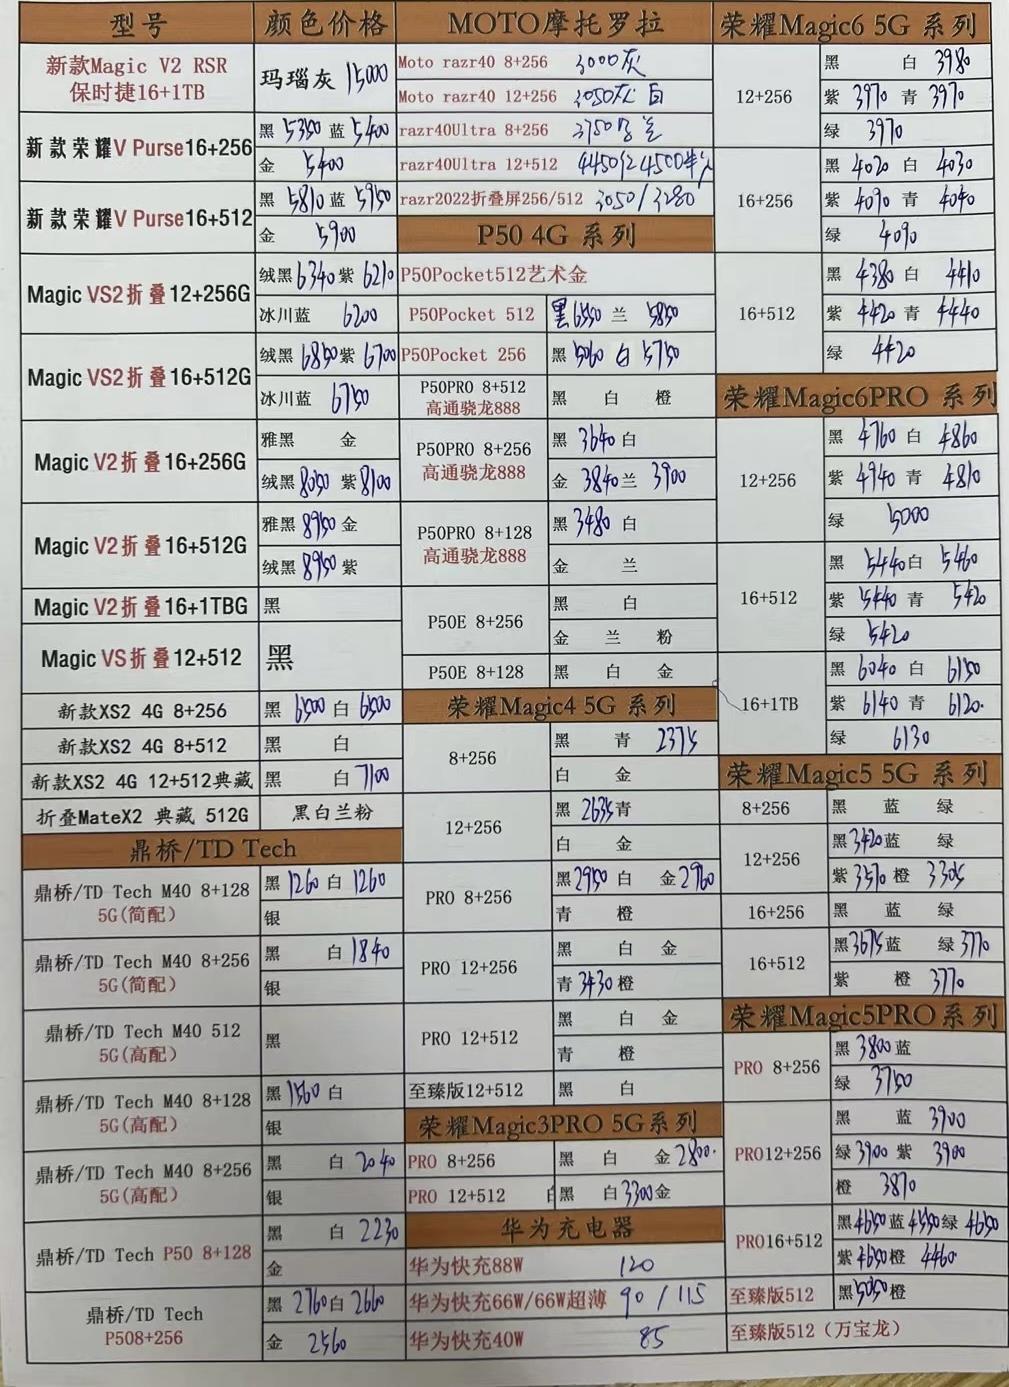 型号 颜色价格
新款Magic V2 RSR
保时捷16+1TB
玛瑙灰 15000
新款荣耀V Purse16+256
黑 5350 蓝 5400
金 5400
新款荣耀V Purse16+512
黑 5810 蓝 5950
金 5900
Magic VS2折叠12+256G
绒黑 6340 紫 6210
冰川蓝 6200
Magic VS2折叠16+512G
绒黑 6850 紫 6700
冰川蓝 6750
Magic V2折叠16+256G
雅黑 金
绒黑 8050 紫 8100
Magic V2折叠16+512G
雅黑 8950 金
绒黑 8950 紫
Magic V2折叠16+1TBG 黑
Magic VS折叠12+512 黑
新款XS2 4G 8+256 黑 6500 白 6500
新款XS2 4G 8+512 黑 白
新款XS2 4G 12+512典藏 黑 白 7100
折叠MateX2 典藏 512G 黑白兰粉
鼎桥/TD Tech
鼎桥/TD Tech M40 8+128
5G(简配)
黑 1260 白 1260
银
鼎桥/TD Tech M40 8+256
5G(简配)
黑 白 1840
银
鼎桥/TD Tech M40 512
5G(高配)
黑
鼎桥/TD Tech M40 8+128
5G(高配)
黑 1560 白
银
鼎桥/TD Tech M40 8+256
5G(高配)
黑 白 2040
银
鼎桥/TD Tech P50 8+128
黑 白 2230
金
鼎桥/TD Tech
P508+256
黑 2760 白 2660
金 2560
MOTO摩托罗拉
Moto razr40 8+256 3000灰
Moto razr40 12+256 3050灰 白
razr40Ultra 8+256 3750
razr40Ultra 12+512 4450 4500
razr2022折叠屏256/512 3050/3280
P50 4G 系列
P50Pocket512艺术金
P50Pocket 512 黑 6550 兰 5850
P50Pocket 256 黑 5060 白 5750
P50PRO 8+512
高通骁龙888
黑 白 橙
P50PRO 8+256
高通骁龙888
黑 3640 白
金 3840 兰 3900
P50PRO 8+128
高通骁龙888
黑 3480 白
金 兰
P50E 8+256
黑 白
金 兰 粉
P50E 8+128 黑 白 金
荣耀Magic4 5G 系列
8+256
黑 青 2375
白 金
12+256
黑 2635 青
白 金
PRO 8+256
黑 2950 白 金 2960
青 橙
PRO 12+256
黑 白 金
青 3430 橙
PRO 12+512
黑 白 金
青 橙
至臻版12+512 黑 白
荣耀Magic3PRO 5G系列
PRO 8+256 黑 白 金 2800.
PRO 12+512 黑 白 3300 金
华为充电器
华为快充88W 120
华为快充66W/66W超薄 90 / 115
华为快充40W 85
荣耀Magic6 5G 系列
12+256
黑 白 3980
紫 3970 青 3970
绿 3970
16+256
黑 4020 白 4030
紫 4090 青 4040
绿 4090
16+512
黑 4380 白 4410
紫 4420 青 4440
绿 4420
荣耀Magic6PRO 系列
12+256
黑 4760 白 4860
紫 4940 青 4810
绿 5000
16+512
黑 5440 白 5460
紫 5440 青 5420
绿 5420
16+1TB
黑 6040 白 6150
紫 6140 青 6120.
绿 6130
荣耀Magic5 5G 系列
8+256 黑 蓝 绿
12+256
黑 3420 蓝 绿
紫 3510 橙 3305
16+256 黑 蓝 绿
16+512
黑 3675 蓝 绿 3770
紫 橙 3770
荣耀Magic5PRO系列
PRO 8+256
黑 3800 蓝
绿 3750
PRO12+256
黑 蓝 3900
绿 3900 紫 3900
橙 3870
PRO16+512
黑 4650 蓝 4550 绿 4650
紫 4650 橙 4460
至臻版512 黑 5050 橙
至臻版512（万宝龙）